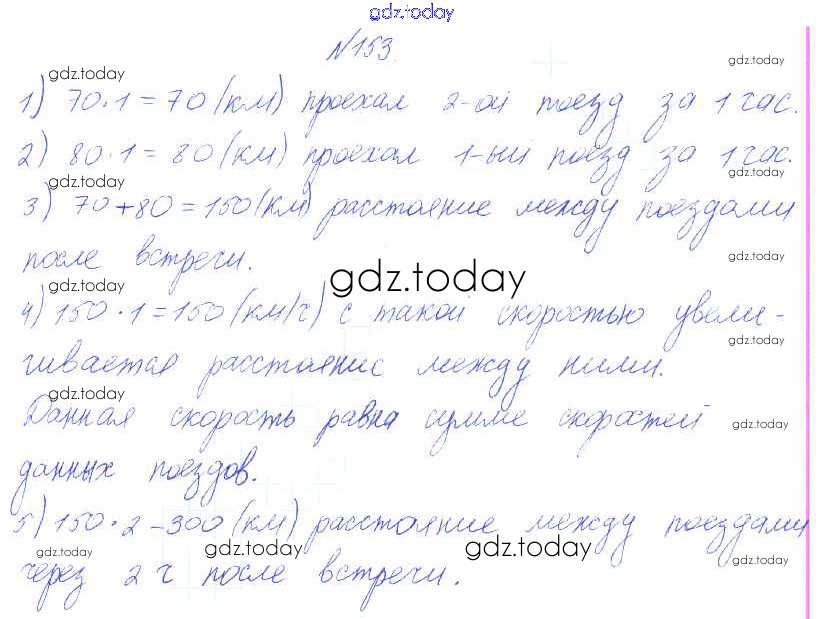 gdz.today
№153.
gdz.today
gdz.today
1) 70·1=70 (км) проехал 2-ой поезд за 1 час.
2) 80·1=80 (км) проехал 1-ый поезд за 1 час.
gdz.today
gdz.today
3) 70+80=150 (км) расстояние между поездами
после встречи.
gdz.today
gdz.today
gdz.today
4) 150·1=150 (км/ч) с такой скоростью увели-
gdz.today
чивается расстояние между ними.
gdz.today
Данная скорость равна сумме скоростей
gdz.today
данных поездов.
5) 150·2-300 (км) расстояние между поездами
gdz.today
gdz.today
gdz.today
gdz.today
через 2 ч после встречи.